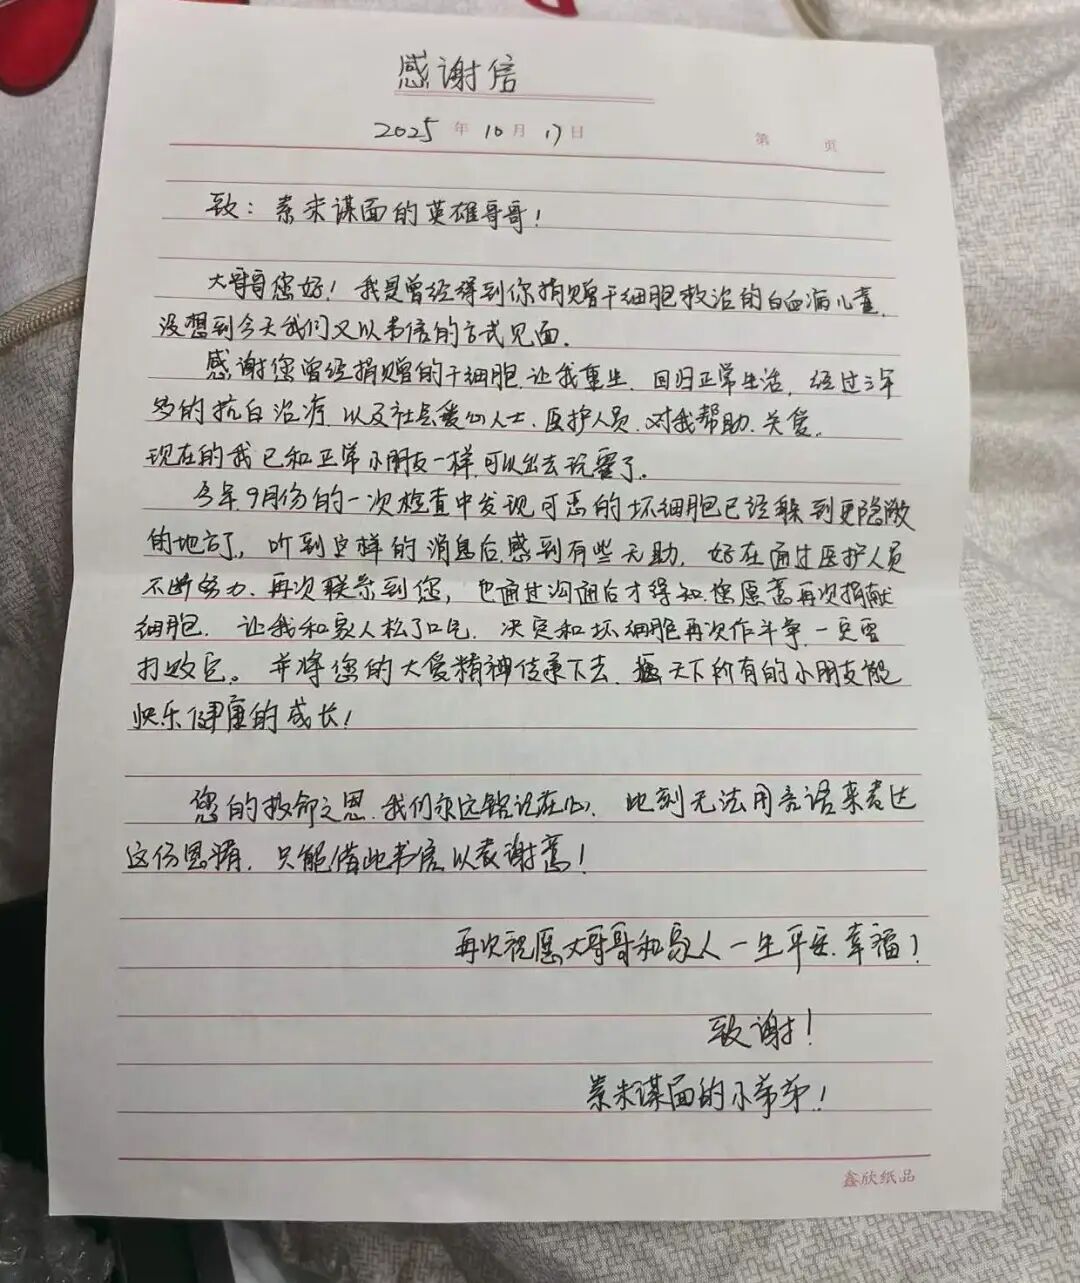 感谢信
2025年10月17日 第 页
致：素未谋面的英雄哥哥！
大哥哥您好！我是曾经得到你捐赠干细胞救治的白血病儿童，
没想到今天我们又以书信的方式见面。
感谢您曾经捐赠的干细胞，让我重生，回归正常生活，经过三年
多的抗白治疗，以及社会爱心人士、医护人员，对我帮助、关爱。
现在的我已和正常小朋友一样，可以出去玩耍了。
今年9月份的一次检查中发现可恶的坏细胞已经躲到更隐蔽
的地方了，听到这样的消息后，感到有些无助，好在通过医护人员
不断努力，再次联系到您，也通过沟通后才得知，您愿意再次捐献
细胞，让我和家人松了口气，决定和坏细胞再次作斗争，一定要
打败它。并将您的大爱精神传承下去，天下所有的小朋友般
快乐健康的成长！
您的救命之恩，我们永远铭记在心，此刻无法用言语来表达
这份恩情，只能借此书信以表谢意！
再次祝愿大哥哥和家人一生平安，幸福！
致谢！
素未谋面的小弟弟！
鑫欣纸品